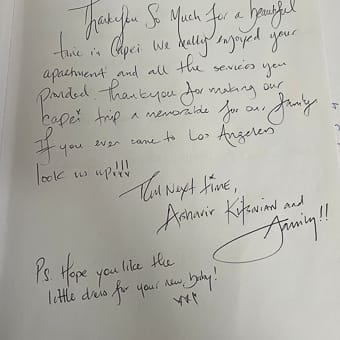 Thankyou So Much for a beautiful
time in Capri We really enjoyed your
apartment and all the services you
Provided. Thankyou for making our
Capri trip a memorable for our family
If you ever come to Los Angeles
look us up!!!
Till Next time,
and
family!!
Ps. Hope you like the
little dress for your new baby!
xxx